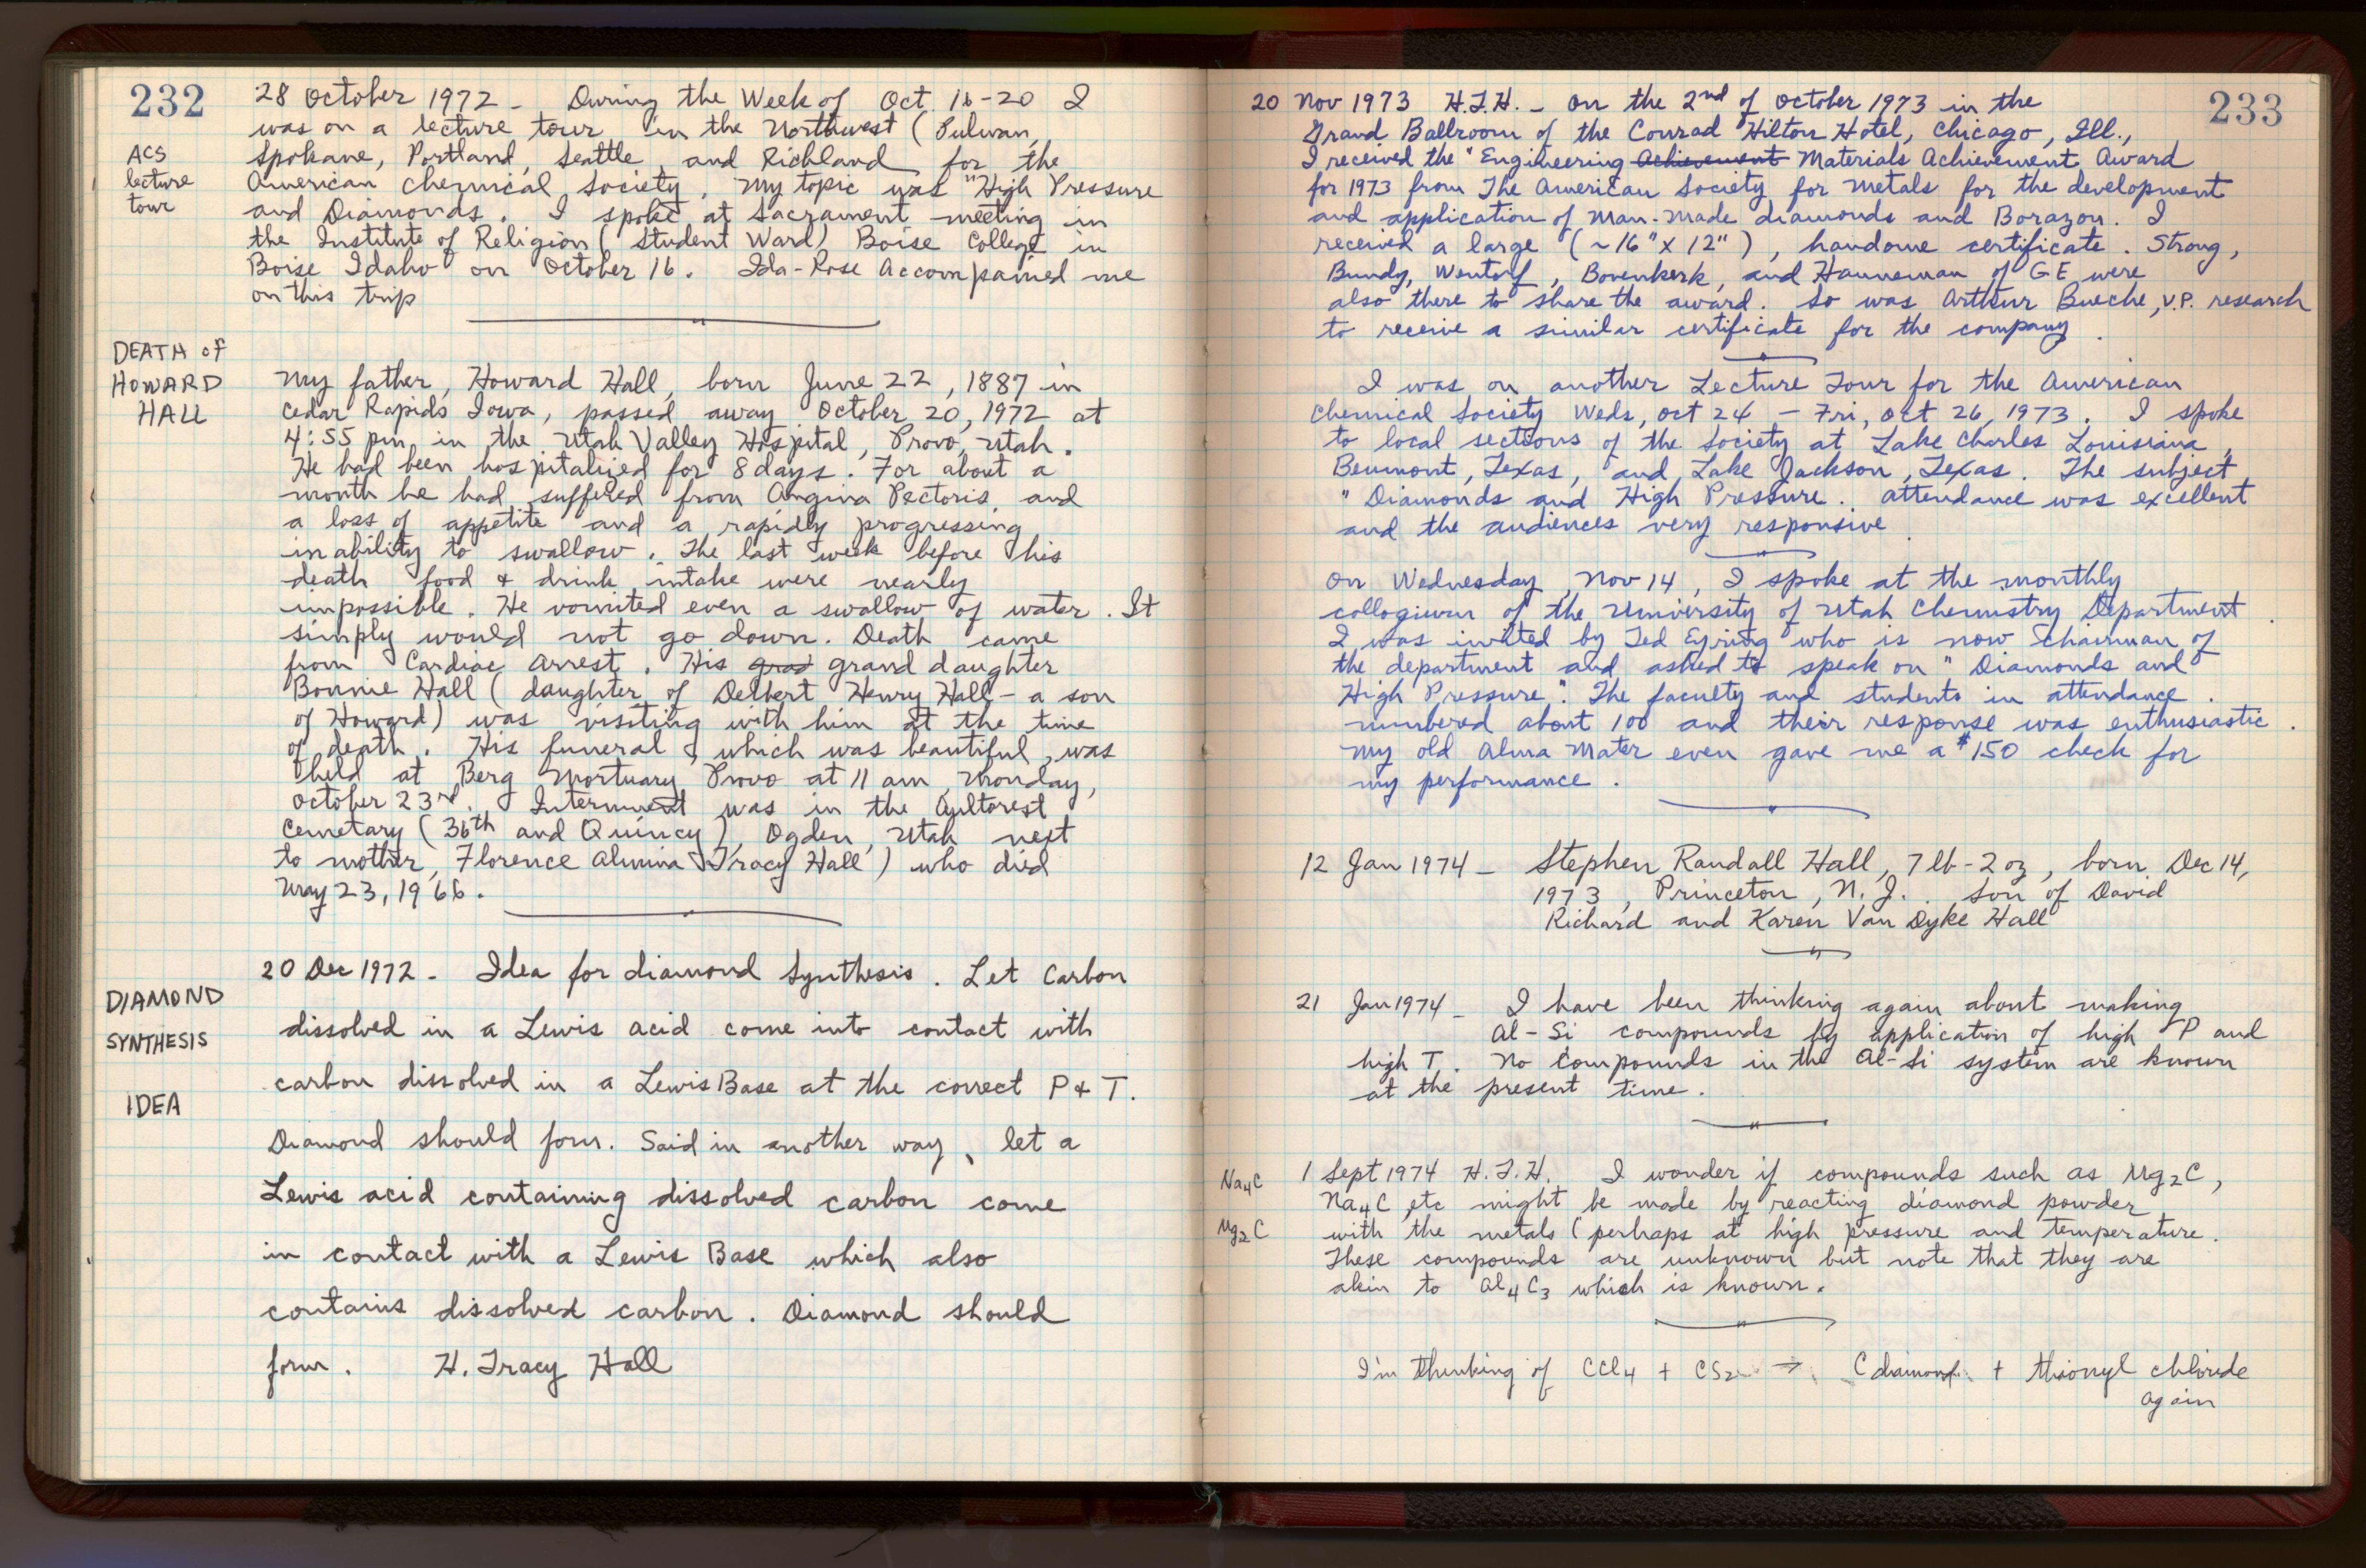 232
28 October 1972 - During the Week of Oct. 16-20 I
was on a lecture tour in the Northwest (Pulman,
ACS
lecture
tour
Spokane, Portland, Seattle, and Richland for the
American Chemical Society. My topic was "High Pressure
and Diamonds. I spoke at Sacrament meeting in
the Institute of Religion (Student Ward) Boise College in
Boise Idaho on October 16. Ida-Rose Accompained me
on this trip
DEATH of
HOWARD
HALL
My father, Howard Hall, born June 22, 1887 in
Cedar Rapids Iowa, passed away October 20, 1972 at
4:55 pm, in the Utah Valley Hospital, Provo, Utah.
He had been hospitalized for 8 days. For about a
month he had suffered from Angina Pectoris, and
a loss of appetite and a rapidly progressing
inability to swallow. The last week before his
death food & drink intake were nearly
impossible. He vomited even a swallow of water. It
simply would not go down. Death came
from Cardiac Arrest. His grad grand daughter
Bonnie Hall (daughter of Delbert Henry Hall - a son
of Howard) was visiting with him at the time
of death. His funeral, which was beautiful, was
held at Berg Mortuary Provo at 11 am, Monday,
October 23rd. Interment was in the Aultorest
Cemetary (36th and Quincy), Ogden, Utah next
to mother, Florence Almina Tracy Hall) who died
May 23, 1966.
DIAMOND
SYNTHESIS
IDEA
20 Dec 1972 - Idea for diamond Synthesis. Let Carbon
dissolved in a Lewis acid come into contact with
carbon dissolved in a Lewis Base at the correct P & T.
Diamond should form. Said in another way, let a
Lewis acid containing dissolved carbon come
in contact with a Lewis Base which also
contains dissolved carbon. Diamond should
form. H. Tracy Hall
233
20 Nov 1973 H.T.H. - On the 2nd of October 1973 in the
Grand Ballroom of the Conrad Hilton Hotel, Chicago, Ill.,
I received the "Engineering Achievement Materials Achievement Award
for 1973 from The American Society for Metals for the development
and application of Man-made diamonds and Borazon. I
received a large (~16"x 12"), handome certificate. Strong,
Bundy, Wentorf, Bovenkerk, and Hanneman of GE were
also there to share the award. So was Arthur Bueche, V.P. research
to receive a similar certificate for the company.
I was on another Lecture Tour for the American
Chemical Society Weds, Oct 24 - Fri, Oct 26, 1973. I spoke
to local sections of the Society at Lake Charles Louisiana,
Beumont, Texas, and Lake Jackson, Texas. The subject
"Diamonds and High Pressure. Attendance was excellent
and the audiences very responsive
On Wednesday, Nov 14, I spoke at the monthly
collogium of the University of Utah Chemistry Department.
I was invited by Ted Eyring who is now Chairman of
the department and asked to speak on "Diamonds and
High Pressure". The faculty and students in attendance
numbered about 100 and their response was enthusiastic.
My old Alma Mater even gave me a $150 check for
my performance.
12 Jan 1974 - Stephen Randall Hall, 7 lb - 2 oz, born Dec 14,
1973, Princeton, N.J. Son of David
Richard and Karen Van Dyke Hall
21 Jan 1974 - I have been thinking again about making
Al-Si compounds by application of high P and
high T. No Compounds in the Al-Si system are known
at the present time.
Na4C
Mg2C
1 Sept 1974 H.T.H. I wonder if compounds such as Mg2C,
Na4C, etc might be made by reacting diamond powder
with the metals (perhaps at high pressure and temperature.
These compounds are unknown but note that they are
akin to Al4C3 which is known.
I'm thinking of CCl4 + CS2 → C diamond + thionyl chloride
again